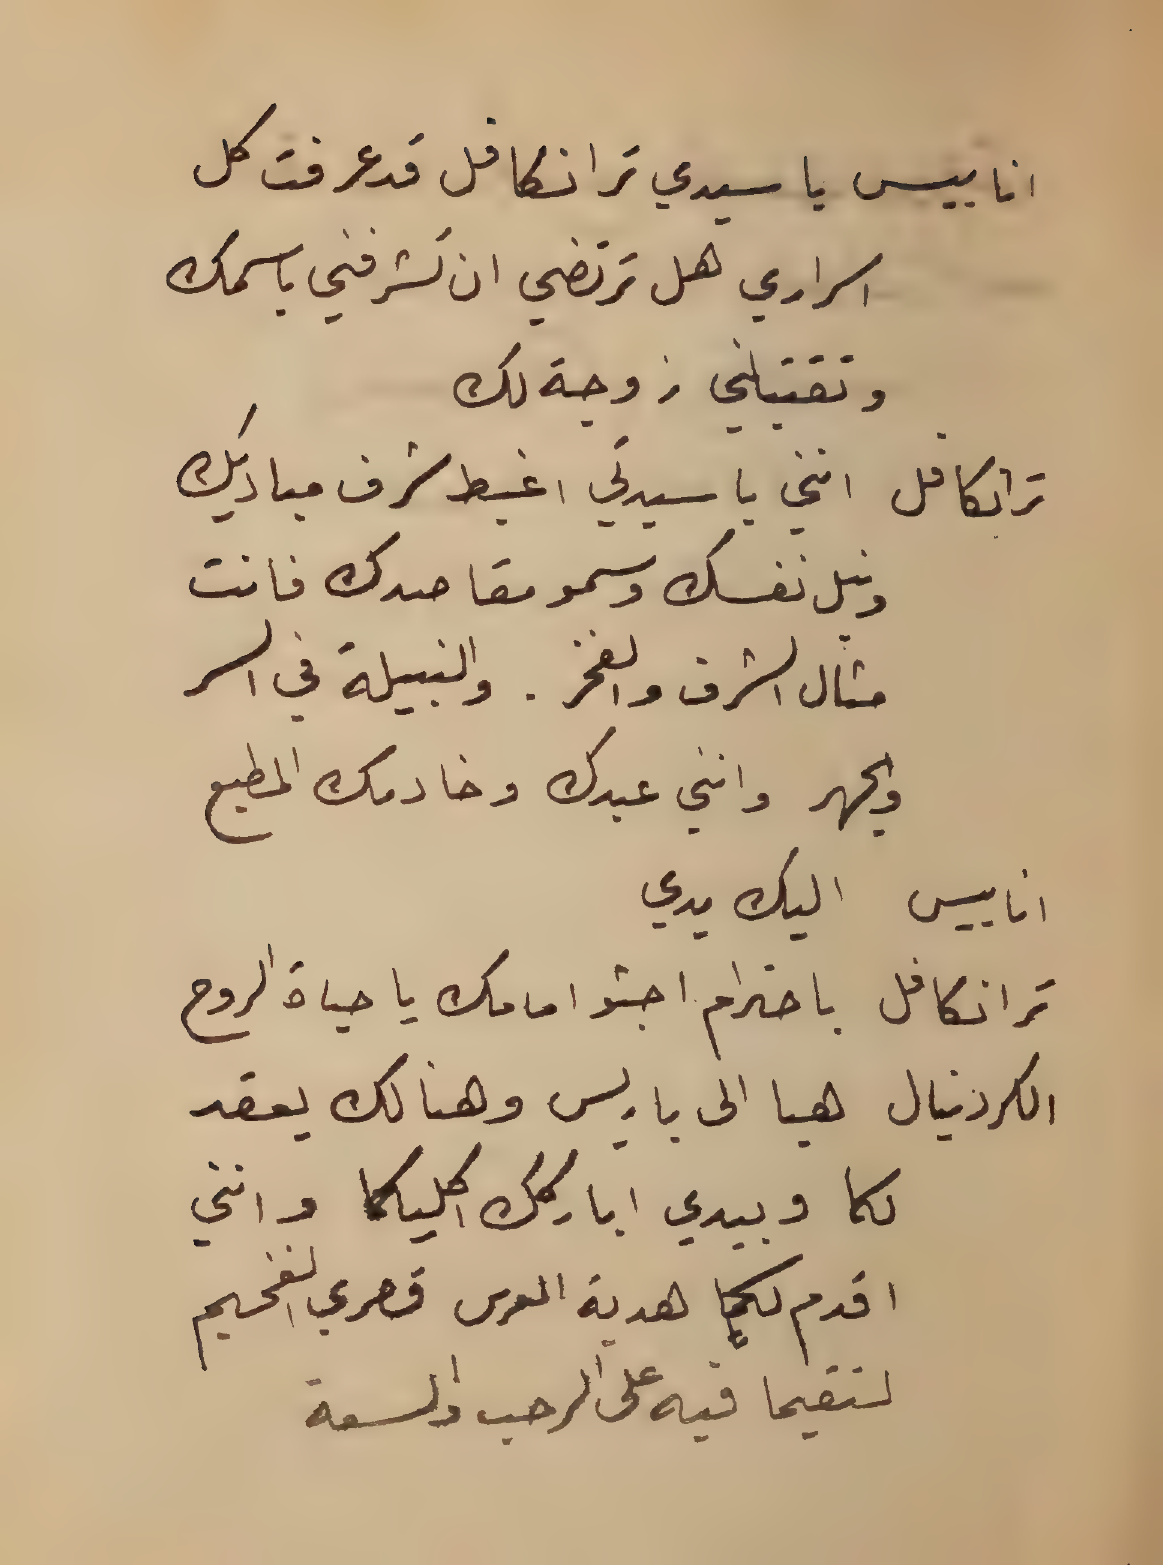 اناييس يا سيدي ترانكافل قد عرفت كل
اسراري هل ترتضي ان تشرفني باسمك
وتقتبلني زوجة لك
ترانكافل انني يا سيدتي اغبط شرف مباديك
ونبل نفسك وسمو مقاصدك فانت
مثال الشرف والفخر . والنبيلة في السر
والجهر وانني عبدك وخادمك المطيع
اناييس اليك يدي
ترانكافل باحترام اجثو امامك يا حياة الروح
الكردينال هيا الى باريس وهنالك يعقد
لكما وبيدي ابارك اكليلكما وانني
اقدم لكما هدية العرس قصري الفخيم
لتقيما فيه على الرحب والسعة